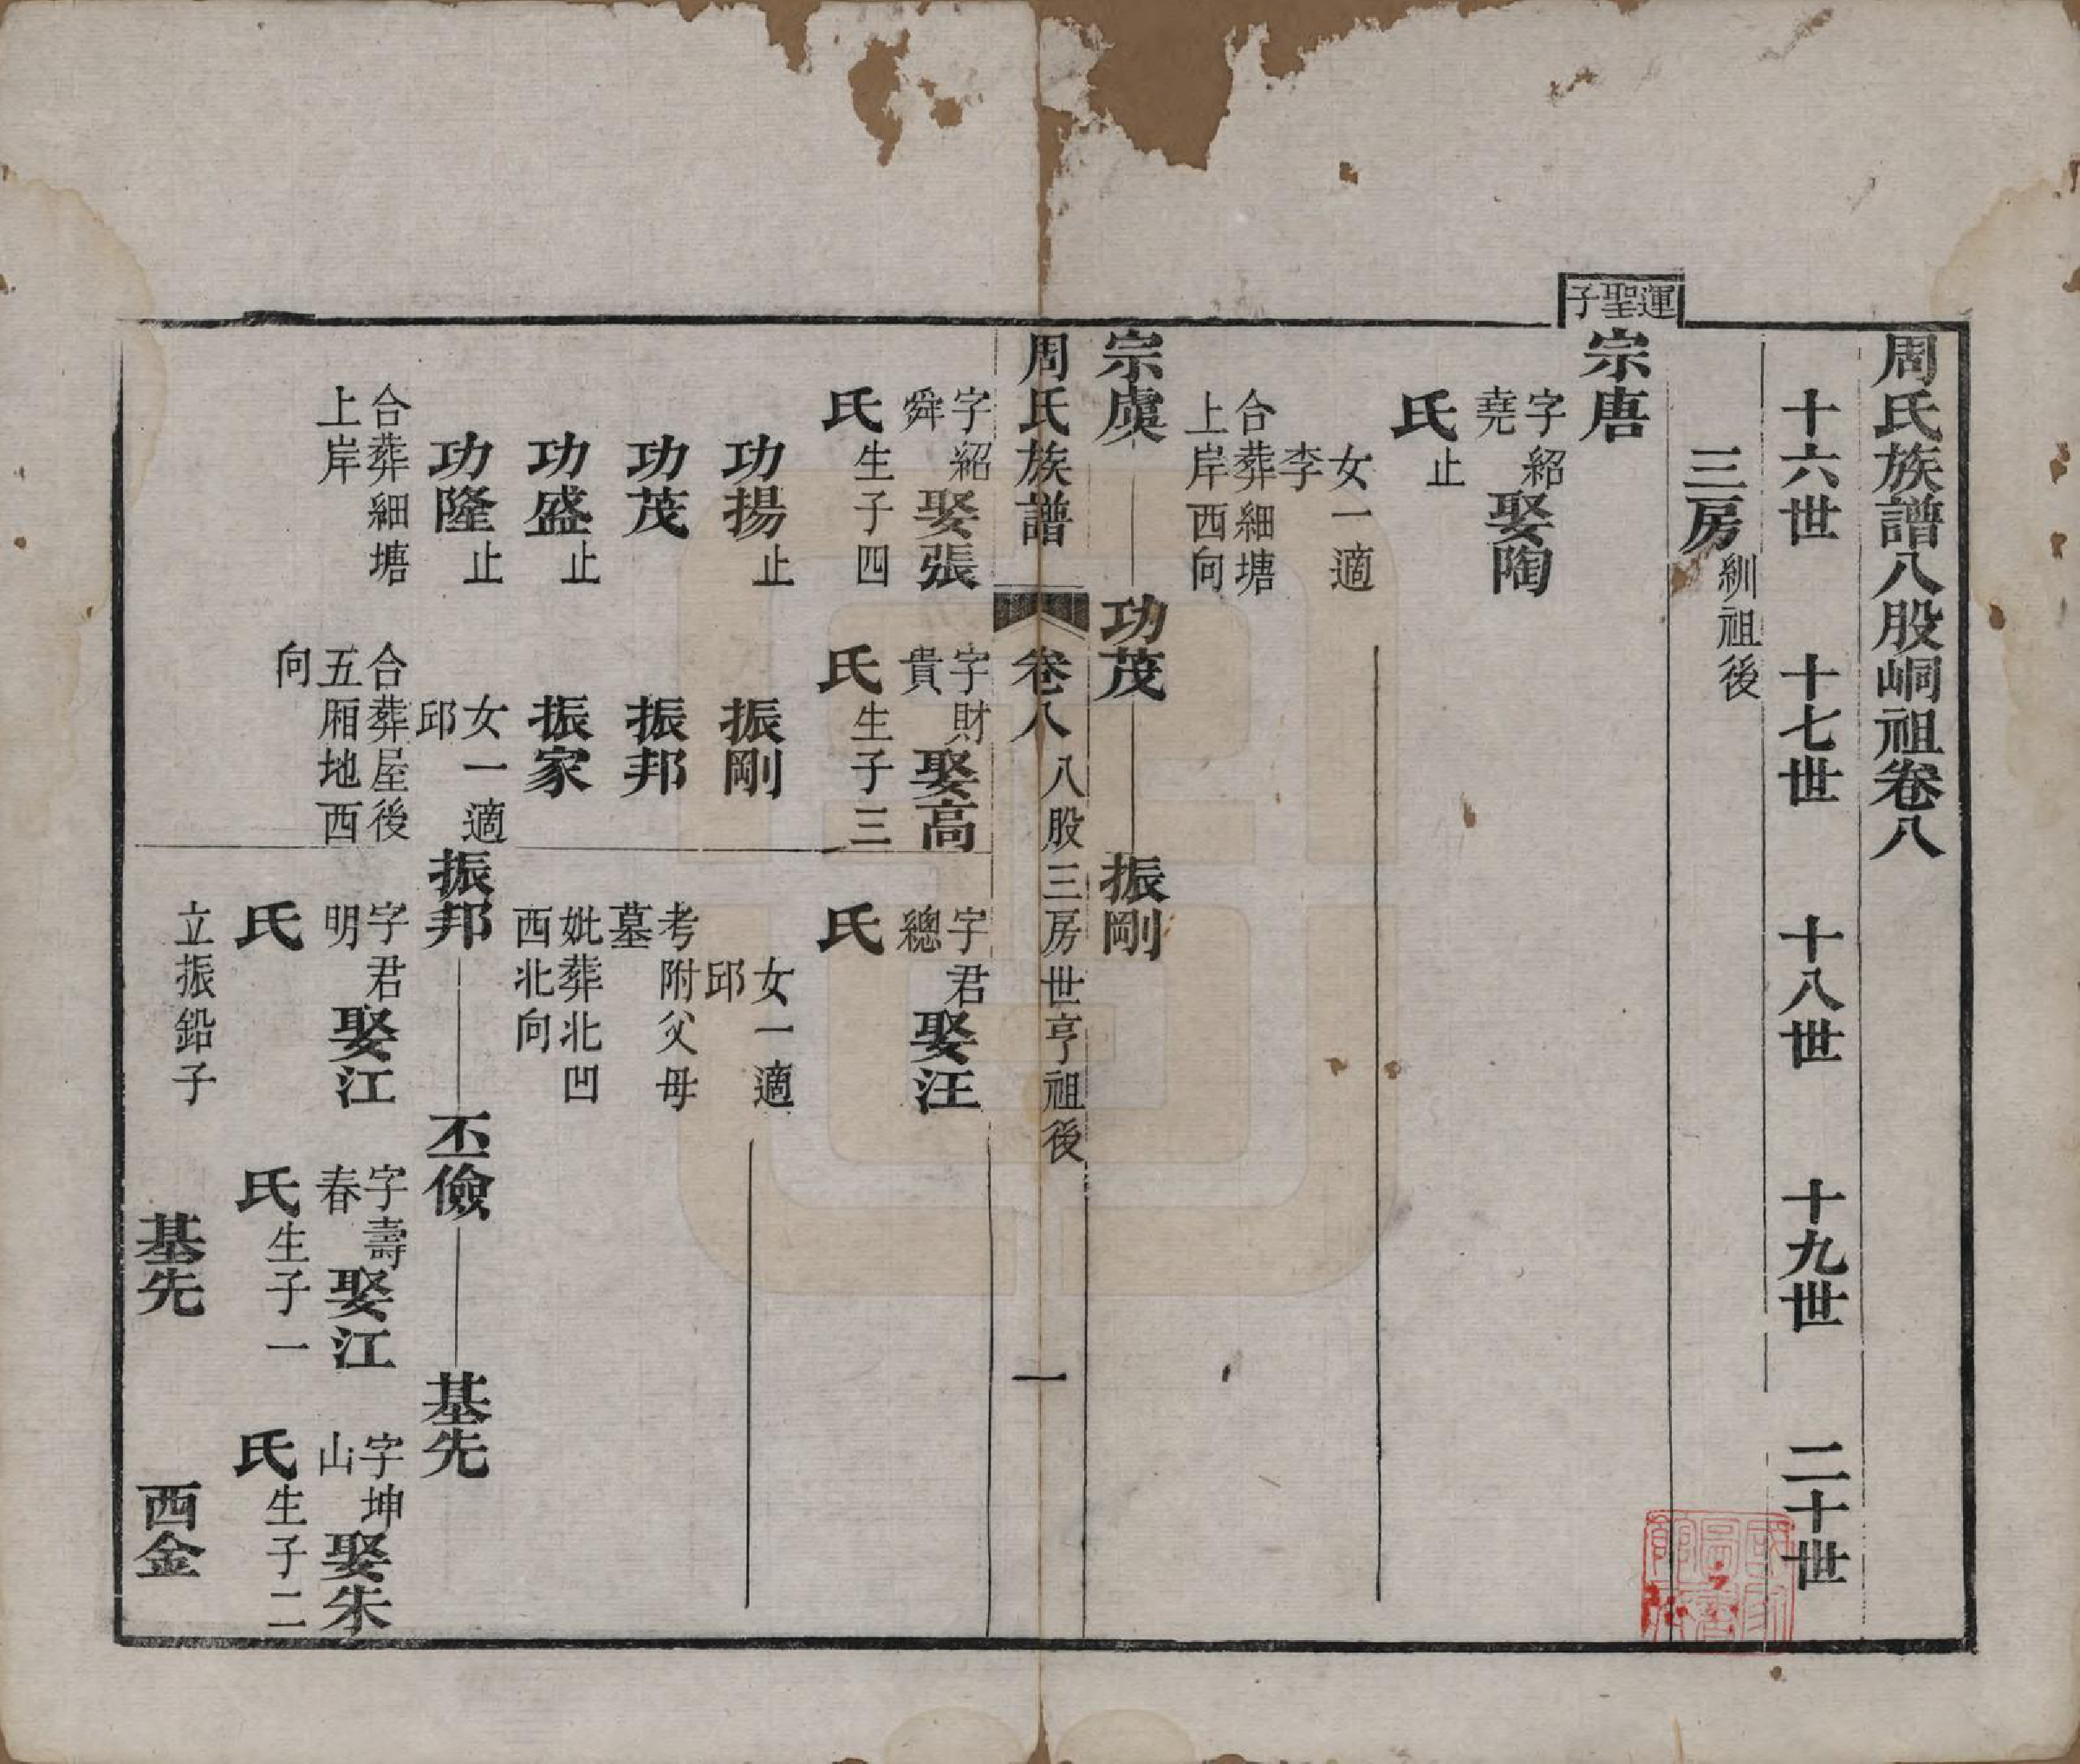 周氏族譜八股峒祖卷八
十六世 十七世 十八世 十九世 二十世
三房 紃祖後
運聖子
宗唐
字紹堯 娶陶
氏 止
女一適李
合葬細塘
上岸西向
宗虞 功茂 振剛
周氏族譜 卷八 八股三房世亨祖後 一
字紹舜 娶張
氏 生子四
功揚 止
功茂
功盛 止
功隆 止
合葬細塘
上岸
字財貴 娶高
氏 生子三
振剛
振邦
振家
女一適邱
合葬屋後
五廂地西
向
字君總 娶汪
氏
女一適邱
考附父母
墓
妣葬北凹
西北向
振邦 丕儉 基先
字君明 娶江
氏
立振鉛子
字壽春 娶江
氏 生子一
基先
字坤山 娶朱
氏 生子二
西金